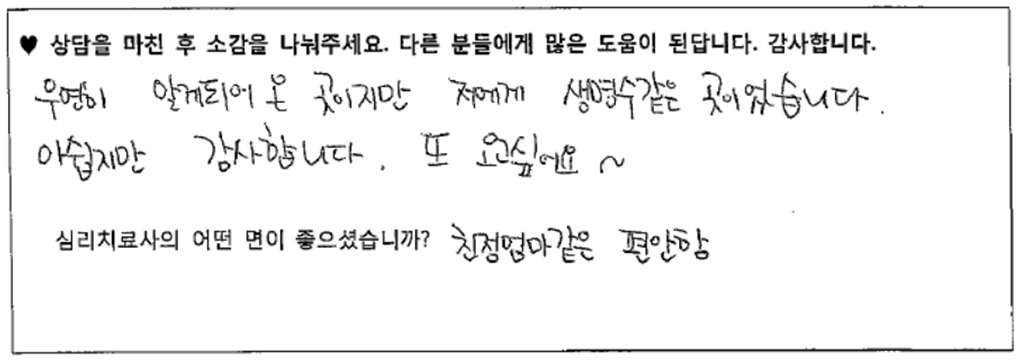 ♥ 상담을 마친 후 소감을 나눠주세요. 다른 분들에게 많은 도움이 된답니다. 감사합니다.
우연히 알게되어 온 곳이지만 저에게 생명수같은 곳이었습니다.
아쉽지만 감사합니다. 또 오고싶어요 ~
심리치료사의 어떤 면이 좋으셨습니까? 친정엄마같은 편안함